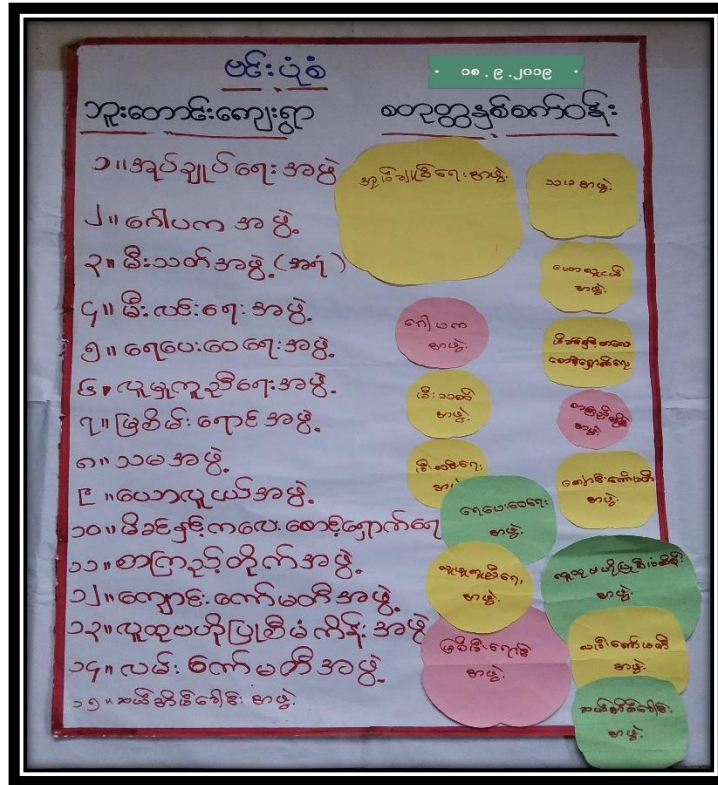 ဗင်းပုံစံ
၁၈ . ၉ . ၂၀၁၉
ဘူးတောင်းကျေးရွာ
စတုတ္ထနှစ်စက်ဝန်း
၁။ အုပ်ချုပ်ရေး အဖွဲ့
၂။ ဂေါပက အဖွဲ့
၃။ မီးသတ်အဖွဲ့ (အရံ)
၄။ မီးလင်းရေး အဖွဲ့
၅။ ရေပေးဝေရေး အဖွဲ့
၆။ လူမှုကူညီရေး အဖွဲ့
၇။ ဖြစိမ်းရောင် အဖွဲ့
၈။ သမ အဖွဲ့
၉။ ယောလူငယ် အဖွဲ့
၁၀။ မိခင်နှင့်ကလေးစောင့်ရှောက်ရေ
၁၁။ စာကြည့်တိုက်အဖွဲ့
၁၂။ ကျောင်းကော်မတီအဖွဲ့
၁၃။ လူထုဗဟိုပြုစီမံကိန်း အဖွဲ့
၁၄။ လမ်းကော်မတီအဖွဲ့
၁၅။ ဆယ်အိမ်ခေါင်း အဖွဲ့
အုပ်ချုပ်ရေးအဖွဲ့
သမ အဖွဲ့
ယောလူငယ်
အဖွဲ့
ဂေါပက
အဖွဲ့
မိခင်နှင့်ကလေး
စောင့်ရှောက်ရေး
မီးသတ်
အဖွဲ့
စာကြည့်တိုက်
အဖွဲ့
မီးလင်းရေး
အဖွဲ့
ကျောင်းကော်မတီ
အဖွဲ့
ရေပေးဝေရေး
အဖွဲ့
လူမှုကူညီရေး
အဖွဲ့
လူထုဗဟိုပြုစီမံကိန်း
အဖွဲ့
ဖြစိမ်းရောင်
အဖွဲ့
လမ်းကော်မတီ
အဖွဲ့
ဆယ်အိမ်ခေါင်း
အဖွဲ့